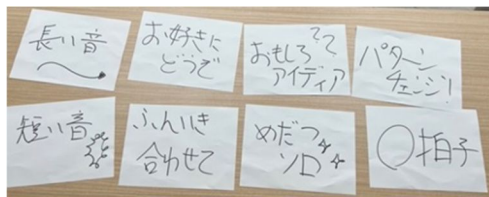 長い音
お好きに
どうぞ
おもしろ
アイディア
パターン
チェンジ!
短い音
ふんいき
合わせて
めだつ
ソロ
〇拍子